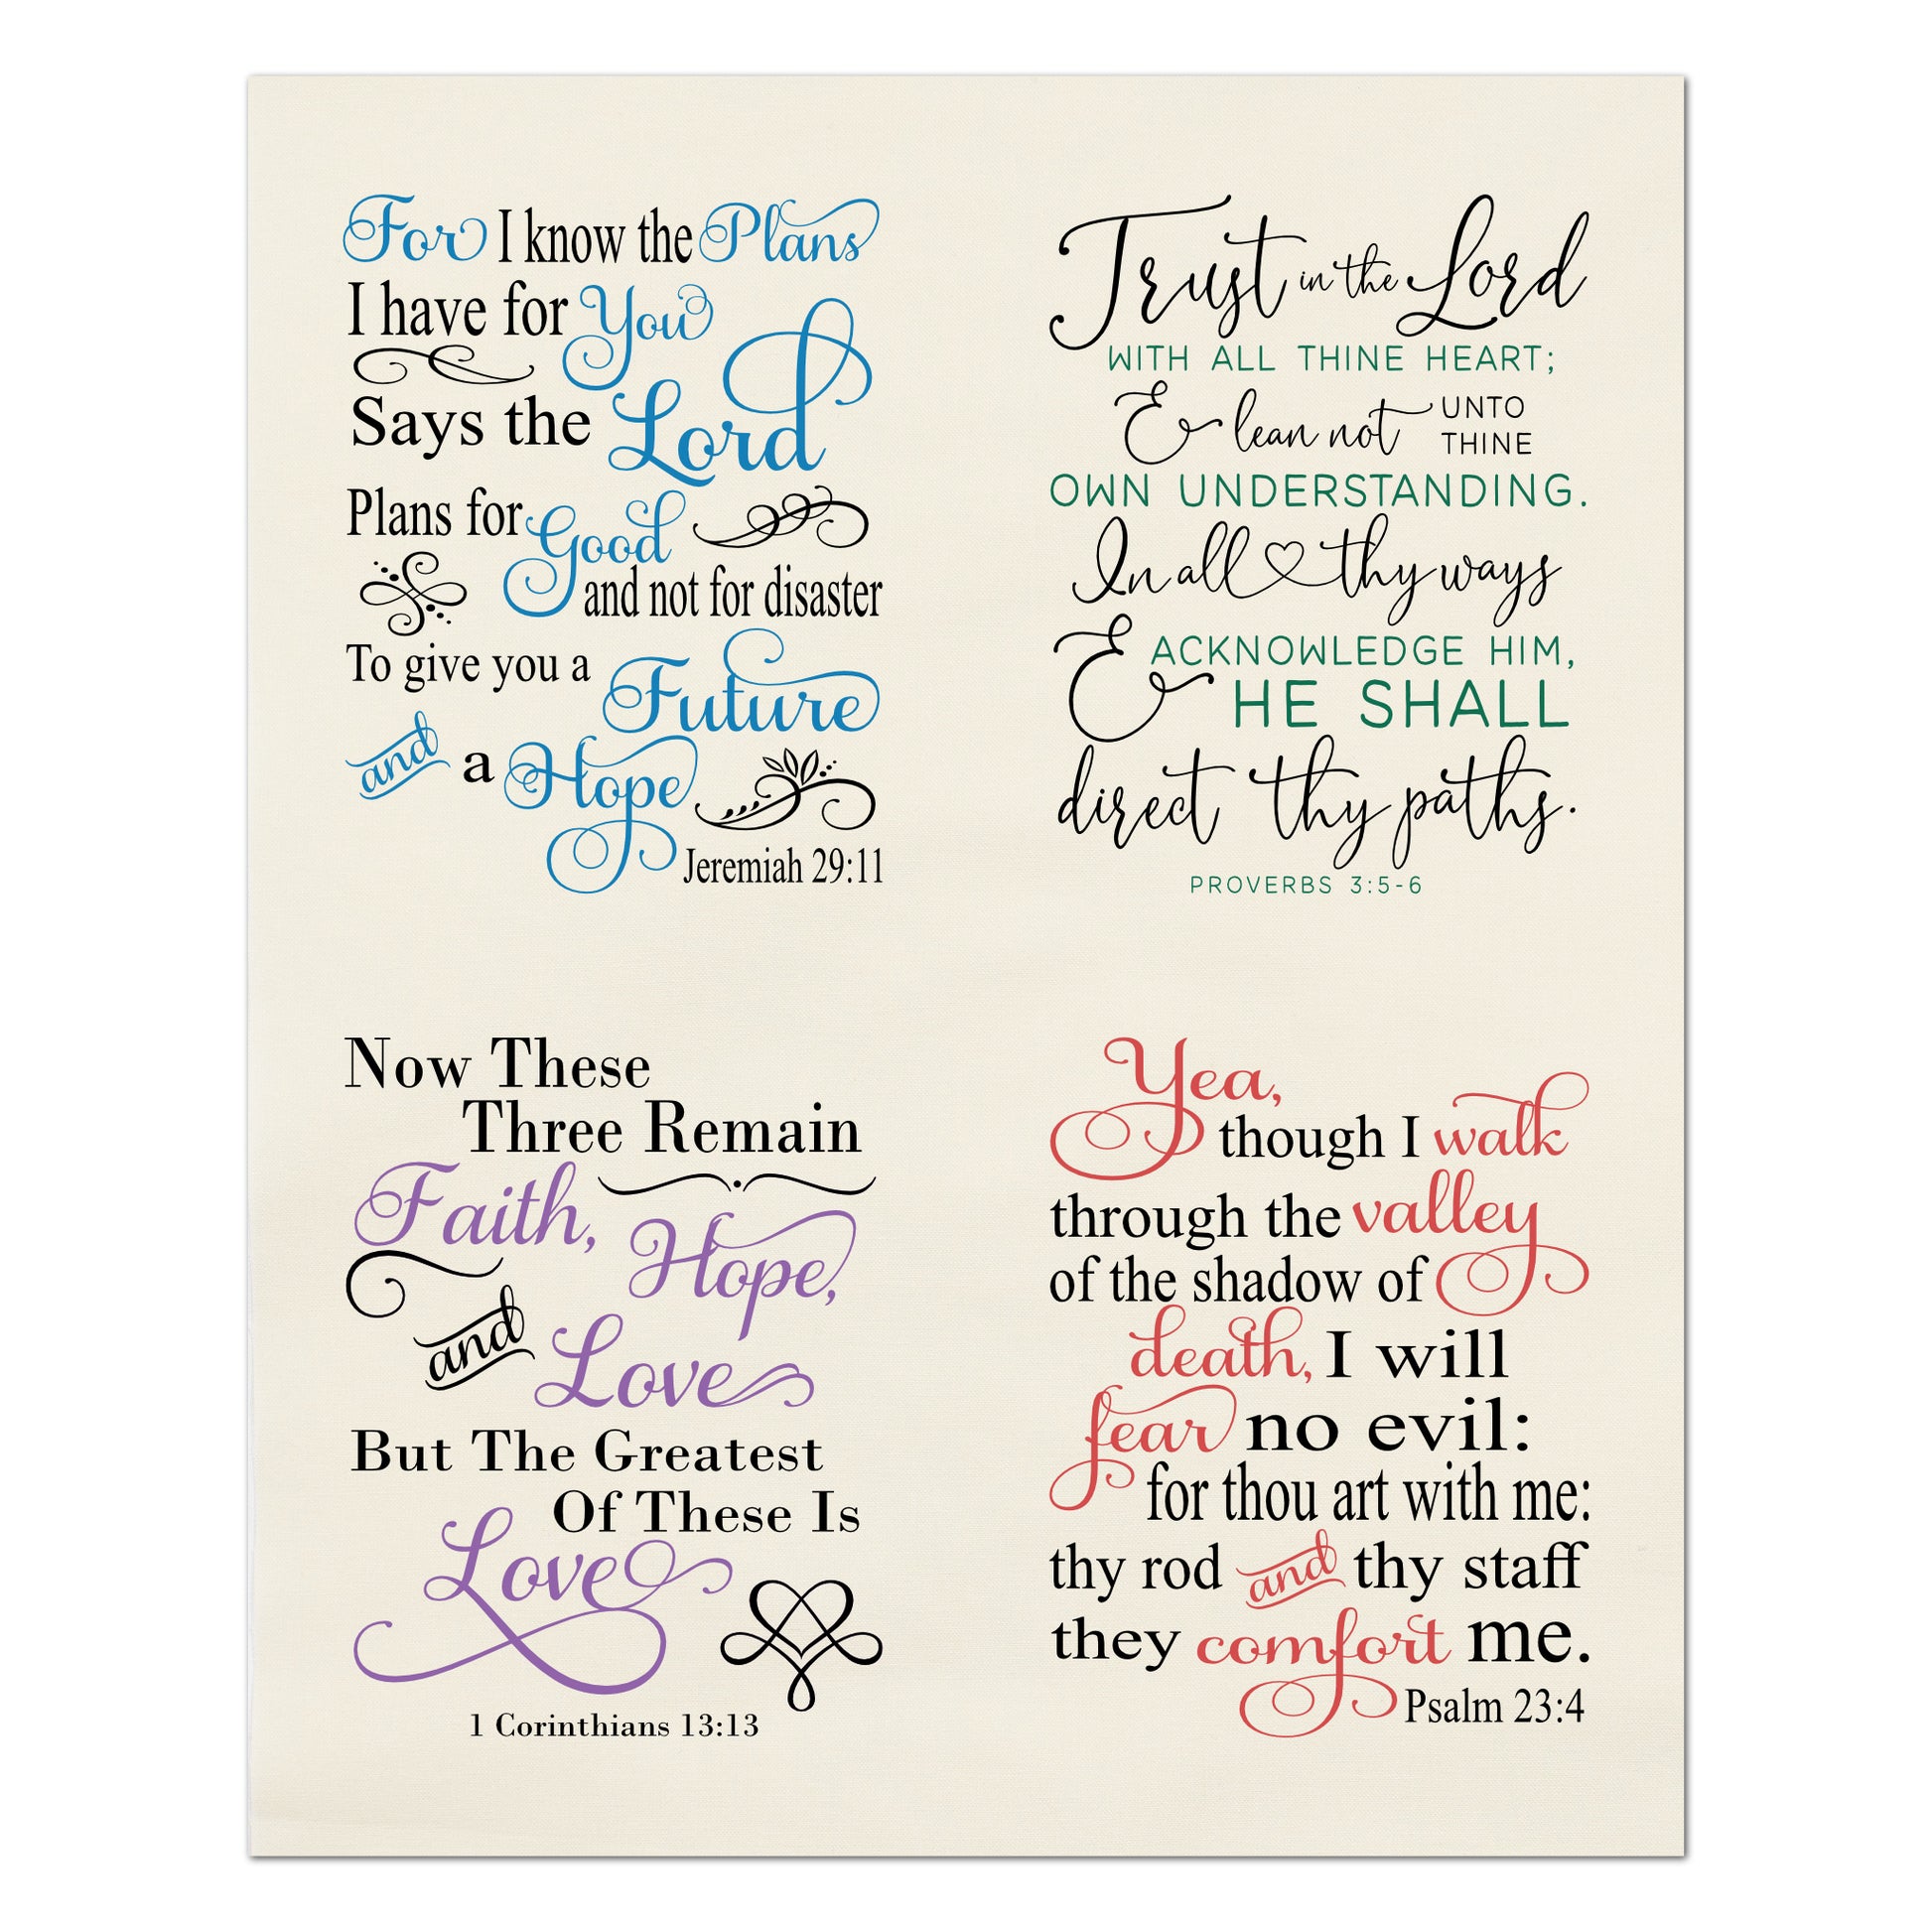 For I know the Plans
I have for You
Says the Lord
Plans for Good
and not for disaster
To give you a Future
and a Hope
Jeremiah 29:11
Trust in the Lord
WITH ALL THINE HEART;
& lean not UNTO THINE
OWN UNDERSTANDING.
In all thy ways
& ACKNOWLEDGE HIM,
HE SHALL
direct thy paths.
PROVERBS 3:5-6
Now These
Three Remain
Faith, Hope,
and Love
But The Greatest
Of These Is
Love
1 Corinthians 13:13
Yea,
though I walk
through the valley
of the shadow of
death, I will
fear no evil:
for thou art with me:
thy rod and thy staff
they comfort me.
Psalm 23:4